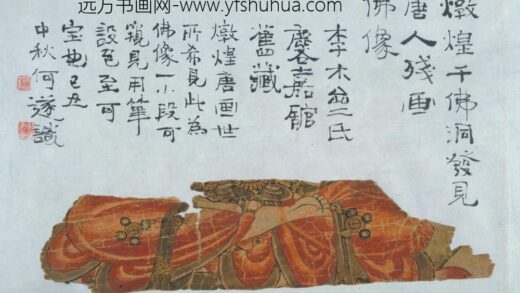 远方书画网-www.yfshuhua.com
燉煌千佛洞發見
唐人殘画
佛像
李木齋氏
麐嘉館
舊藏
燉煌唐画世
所希見此為
佛像一小段可
窺見用筆
設色至可
宝也己丑
中秋何遂識